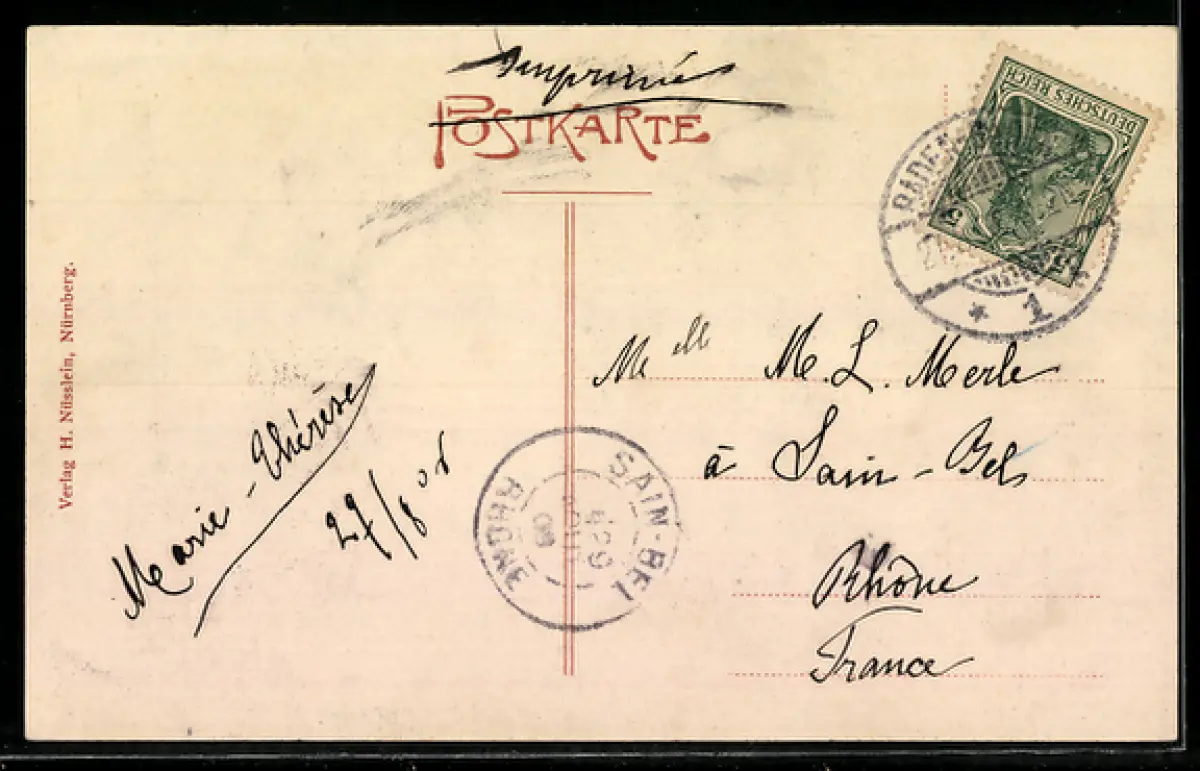 Imprimés
POSTKARTE
DEUTSCHES REICH
5 5
BADEN
* 1 c
Melle M. L. Merle
à Sain-Bel
Rhône
France
Marie-Thérèse
27/8 08
SAIN-BEL
RHONE
Verlag H. Nüsslein, Nürnberg.